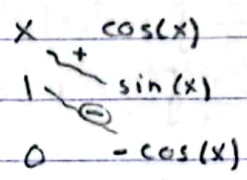 x cos(x)
+
1 sin(x)
-
0 -cos(x)